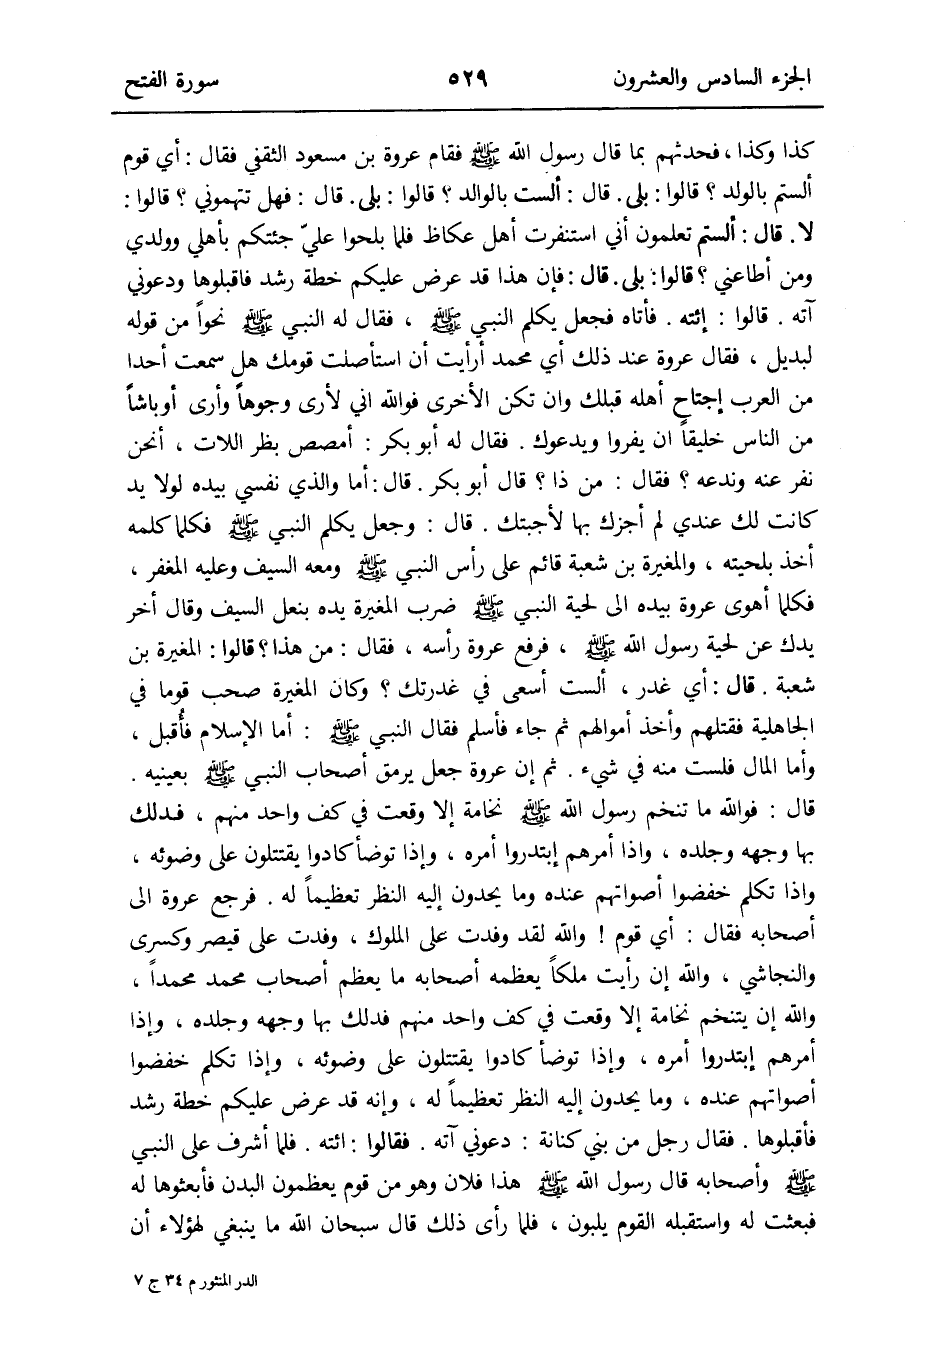 الجزء السادس والعشرون ٥٢٩ سورة الفتح
كذا وكذا ، فحدثهم بما قال رسول الله ﷺ فقام عروة بن مسعود الثقفي فقال : أي قوم
ألستم بالولد ؟ قالوا : بلى . قال : ألست بالوالد ؟ قالوا : بلى . قال : فهل تتهموني ؟ قالوا :
لا . قال : ألستم تعلمون أني استنفرت أهل عكاظ فلما بلحوا عليّ جئتكم بأهلي وولدي
ومن أطاعني ؟ قالوا : بلى . قال : فإن هذا قد عرض عليكم خطة رشد فاقبلوها ودعوني
آته . قالوا : إئته . فأتاه فجعل يكلم النبي ﷺ ، فقال له النبي ﷺ نحواً من قوله
لبديل ، فقال عروة عند ذلك أي محمد أرأيت أن استأصلت قومك هل سمعت أحدا
من العرب إجتاح أهله قبلك وان تكن الأخرى فوالله اني لأرى وجوهاً وأرى أوباشاً
من الناس خليقاً ان يفروا ويدعوك . فقال له أبو بكر : أمصص بظر اللات ، أنحن
نفر عنه وندعه ؟ فقال : من ذا ؟ قال أبو بكر . قال : أما والذي نفسي بيده لولا يد
كانت لك عندي لم أجزك بها لأجبتك . قال : وجعل يكلم النبي ﷺ فكلما كلمه
أخذ بلحيته ، والمغيرة بن شعبة قائم على رأس النبي ﷺ ومعه السيف وعليه المغفر ،
فكلما أهوى عروة بيده الى لحية النبي ﷺ ضرب المغيرة يده بنعل السيف وقال أخر
يدك عن لحية رسول الله ﷺ ، فرفع عروة رأسه ، فقال : من هذا ؟ قالوا : المغيرة بن
شعبة . قال : أي غدر ، ألست أسعى في غدرتك ؟ وكان المغيرة صحب قوما في
الجاهلية فقتلهم وأخذ أموالهم ثم جاء فأسلم فقال النبي ﷺ : أما الإسلام فأُقبل ،
وأما المال فلست منه في شيء . ثم إن عروة جعل يرمق أصحاب النبي ﷺ بعينيه .
قال : فوالله ما تنخم رسول الله ﷺ نخامة إلا وقعت في كف واحد منهم ، فدلك
بها وجهه وجلده ، واذا أمرهم إبتدروا أمره ، وإذا توضأ كادوا يقتتلون على وضوئه ،
واذا تكلم خفضوا أصواتهم عنده وما يحدون إليه النظر تعظيماً له . فرجع عروة الى
أصحابه فقال : أي قوم ! والله لقد وفدت على الملوك ، وفدت على قيصر وكسرى
والنجاشي ، والله إن رأيت ملكاً يعظمه أصحابه ما يعظم أصحاب محمد محمداً ،
والله إن يتنخم نخامة إلا وقعت في كف واحد منهم فدلك بها وجهه وجلده ، وإذا
أمرهم إبتدروا أمره ، وإذا توضأ كادوا يقتتلون على وضوئه ، وإذا تكلم خفضوا
أصواتهم عنده ، وما يحدون إليه النظر تعظيماً له ، وإنه قد عرض عليكم خطة رشد
فأقبلوها . فقال رجل من بني كنانة : دعوني آته . فقالوا : ائته . فلما أشرف على النبي
ﷺ وأصحابه قال رسول الله ﷺ هذا فلان وهو من قوم يعظمون البدن فأبعثوها له
فبعثت له واستقبله القوم يلبون ، فلما رأى ذلك قال سبحان الله ما ينبغي لهؤلاء أن
الدر المنثور م ٣٤ ج ٧